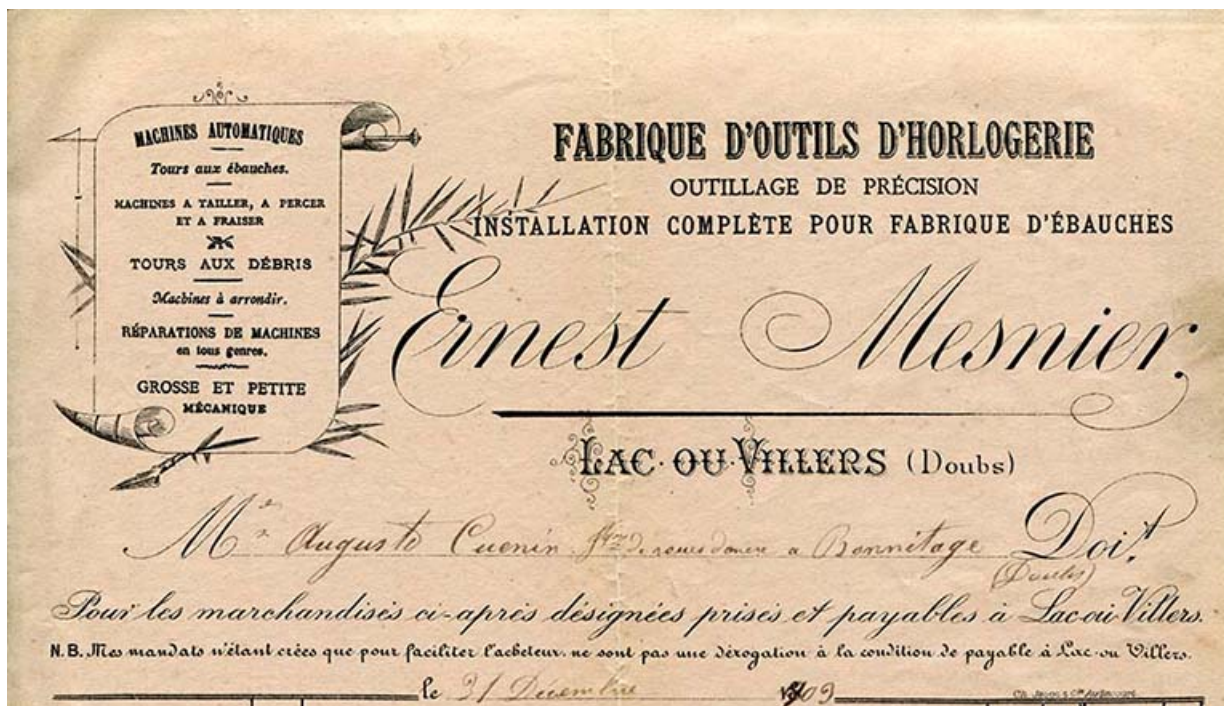 MACHINES AUTOMATIQUES
Tours aux ébauches.
MACHINES A TAILLER, A PERCER
ET A FRAISER
TOURS AUX DÉBRIS
Machines à arrondir.
RÉPARATIONS DE MACHINES
en tous genres.
GROSSE ET PETITE
MÉCANIQUE
FABRIQUE D'OUTILS D'HORLOGERIE
OUTILLAGE DE PRÉCISION
INSTALLATION COMPLÈTE POUR FABRIQUE D'ÉBAUCHES
Ernest Mesnier,
LAC-OU-VILLERS (Doubs)
Mr Auguste Cuenin a Bonnétage Doit
(Doubs)
Pour les marchandises ci-après désignées prises et payables à Lac-ou-Villers.
N.B. Mes mandats n'étant crées que pour faciliter l'acheteur, ne sont pas une dérogation à la condition de payable à Lac-ou Villers.
le 31 Décembre 1903